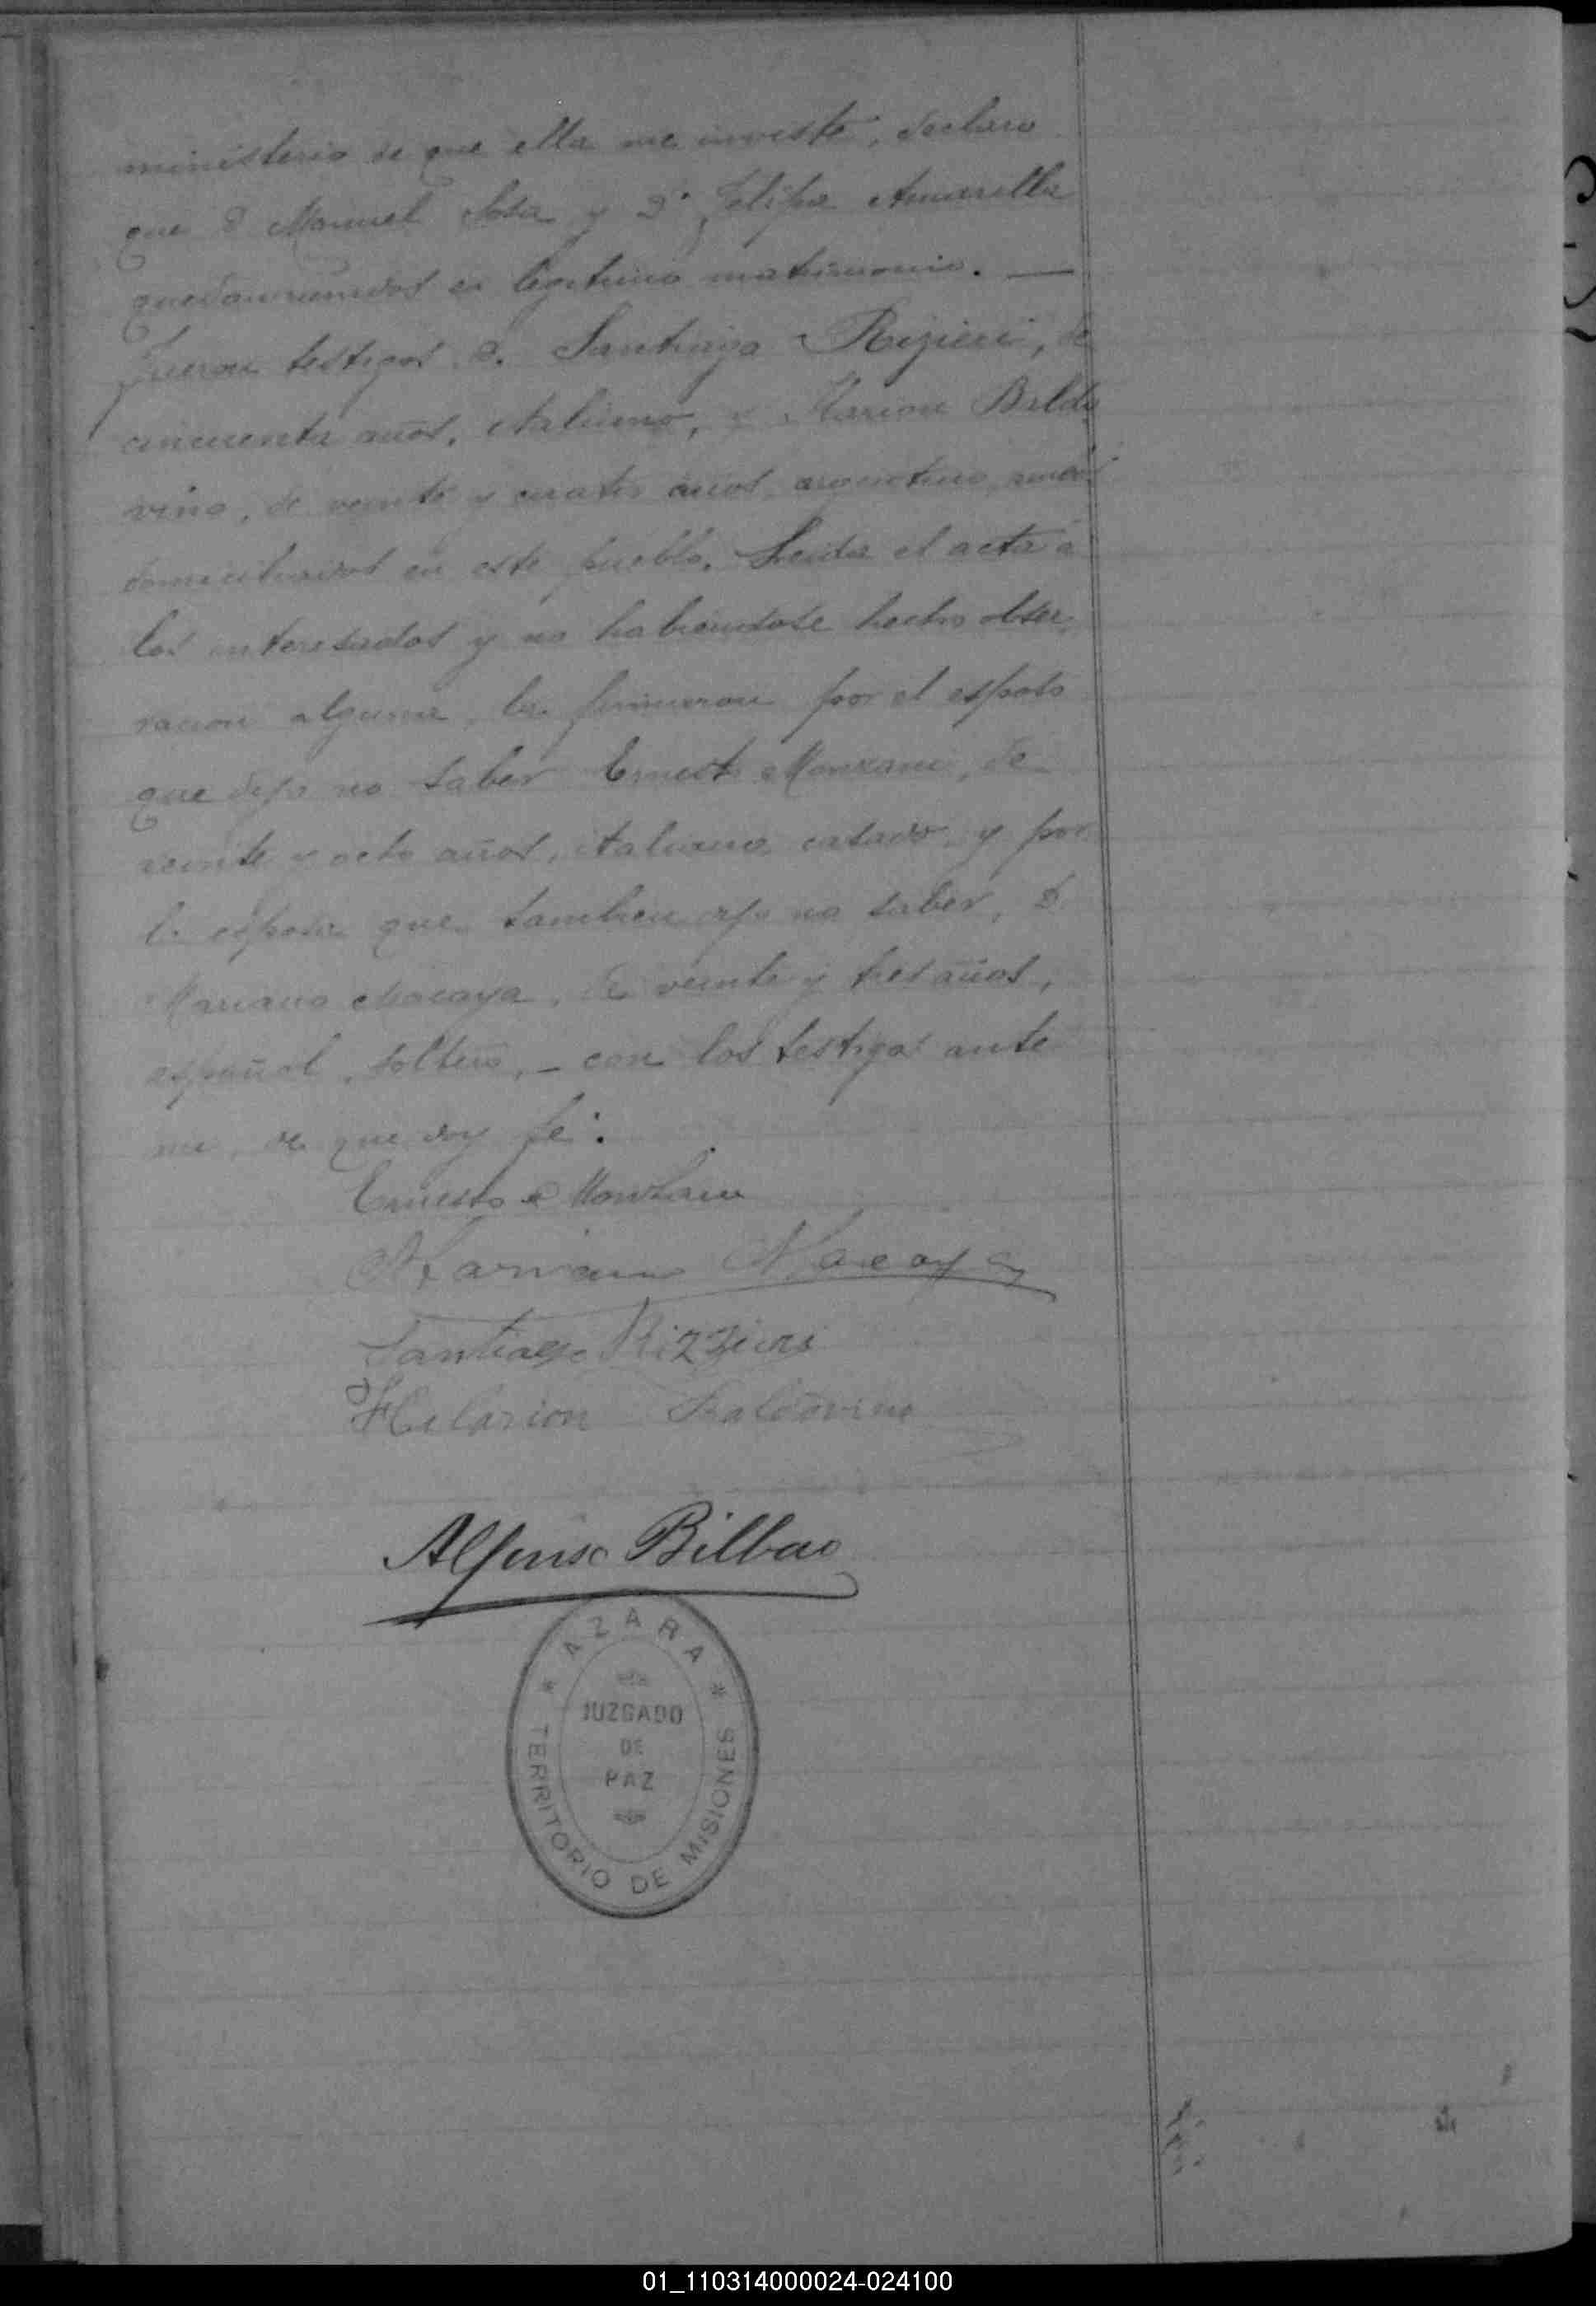 ministerio de que ella me inviste, declaro
que D Manuel Sosa y Dª Felipa Amarilla
quedan unidos en legitimo matrimonio. —
Fueron testigos D. Santiago Rizieri, de
cincuenta años, italiano, y Ilarion Baldo
vino, de veinte y cuatro años, argentino,
domiciliados en este pueblo. Leida el acta a
los interesados y no habiendose hecho obser
vacion alguna, la firmaron por el esposo
que dijo no saber Ernesto Monzani, de
veinte y ocho años, italiano, casado, y por
la esposa que tambien dijo no saber, D.
Mariano Macaya, de veinte y tres años,
español, soltero, — con los testigos ante
mi, de que doy fé.
Ernesto
Mariano Macaya
Santiago Rizzieri
Hilarion Baldovino
Alfonso Bilbao
* AZARA *
JUZGADO
DE
PAZ
TERRITORIO DE MISIONES
01_110314000024-024100